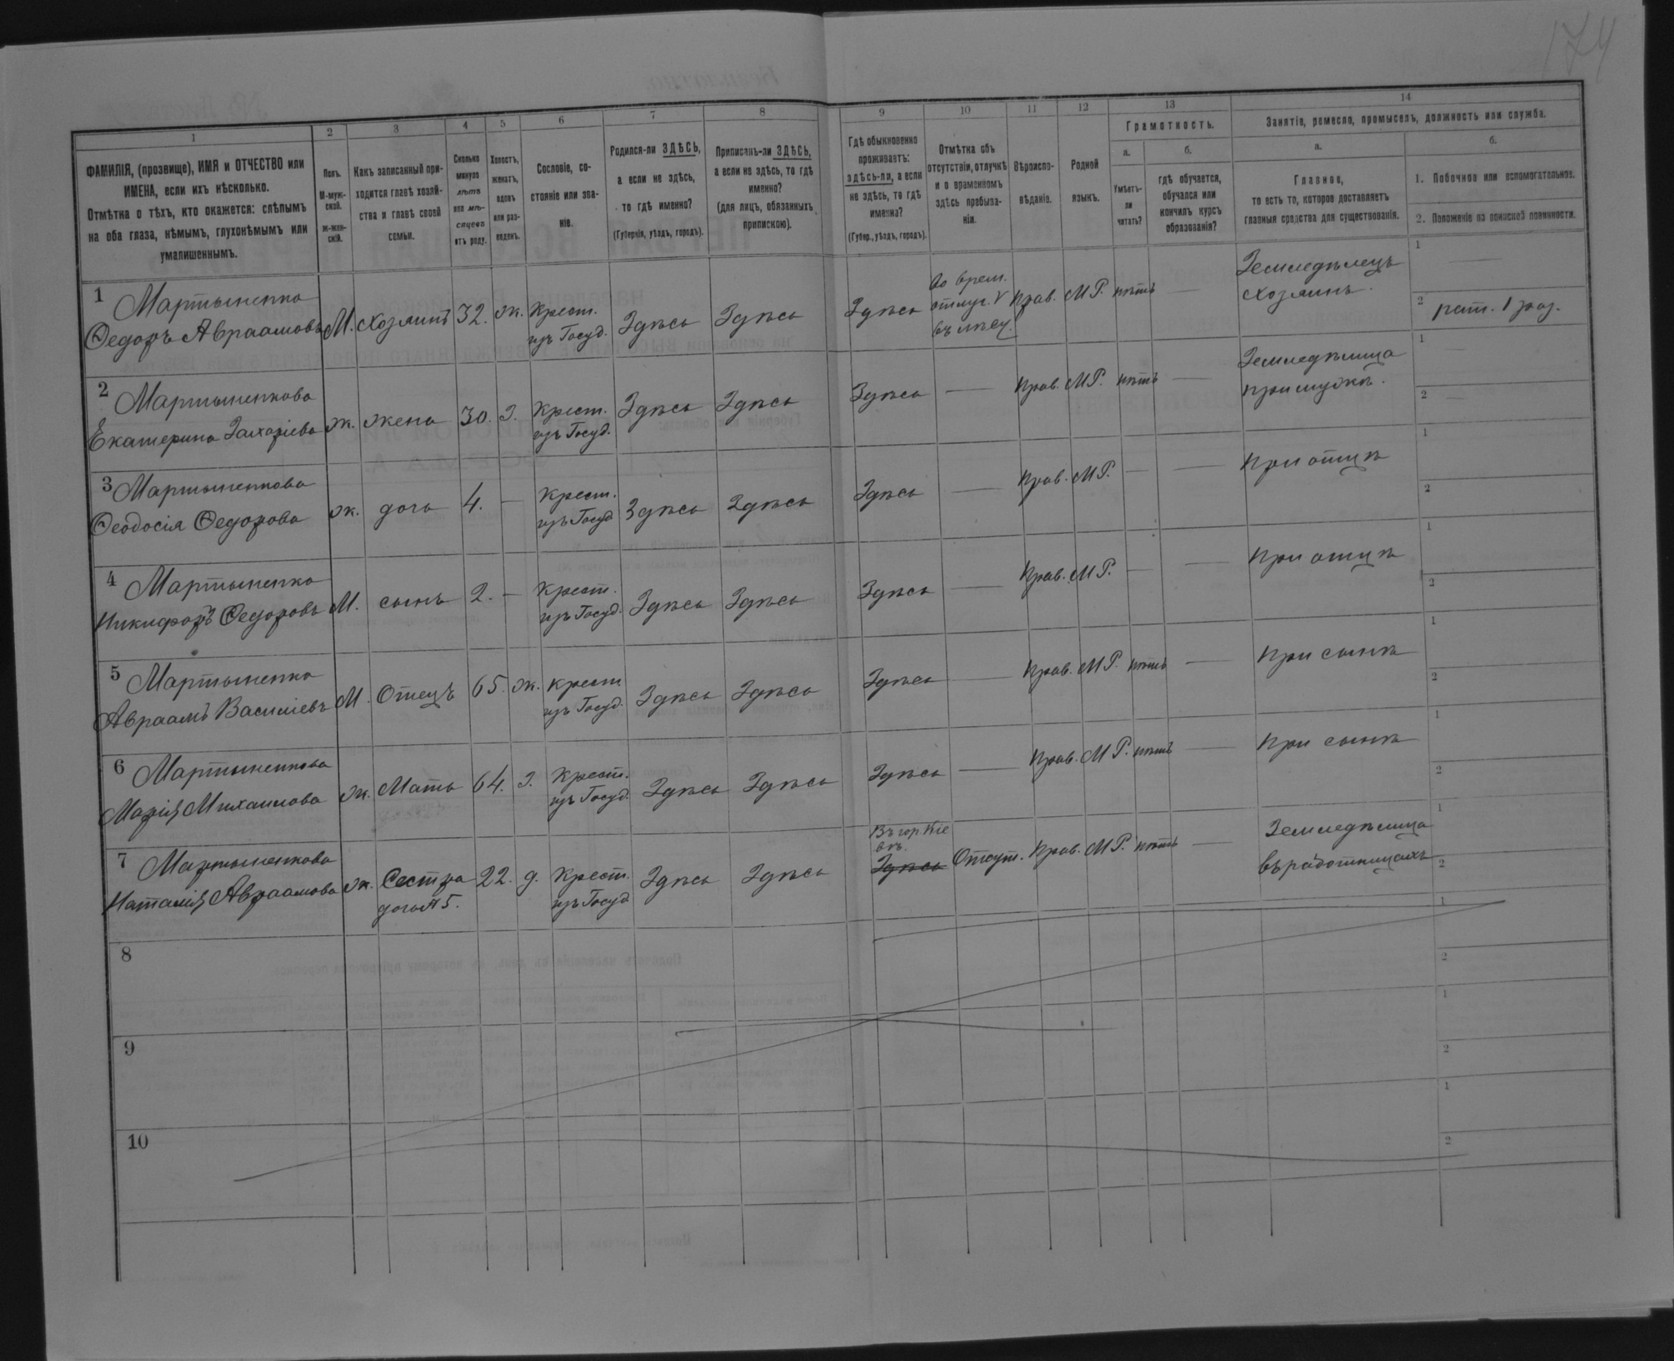 174
1
2
3
4
5
6
7
8
9
10
11
12
13
14
ФАМИЛІЯ, (прозвище), ИМЯ и ОТЧЕСТВО или
ИМЕНА, если ихъ нѣсколько.
Отмѣтка о тѣхъ, кто окажется: слѣпымъ
на оба глаза, нѣмымъ, глухонѣмымъ или
умалишеннымъ.
Полъ.
М-муж-
ской.
Ж-жен-
скій.
Какъ записанный при-
ходится главѣ хозяй-
ства и главѣ своей
семьи.
Сколько
минуло
лѣтъ
или мѣ-
сяцевъ
отъ роду.
Холостъ,
женатъ,
вдовъ
или раз-
веденъ.
Сословіе, со-
стояніе или зва-
ніе.
Родился-ли ЗДѢСЬ,
а если не здѣсь,
то гдѣ именно?
(Губернія, уѣздъ, городъ).
Приписанъ-ли ЗДѢСЬ,
а если не здѣсь, то гдѣ
именно?
(для лицъ, обязанныхъ
припискою).
Гдѣ обыкновенно
проживаетъ:
здѣсь-ли, а если
не здѣсь, то гдѣ
именно?
(Губер., уѣздъ, городъ).
Отмѣтка объ
отсутствіи, отлучкѣ
и о временномъ
здѣсь пребыва-
ніи.
Вѣроиспо-
вѣданіе.
Родной
языкъ.
Грамотность.
а.
Умѣетъ-
ли
читать?
б.
гдѣ обучается,
обучался или
кончилъ курсъ
образованія?
Занятіе, ремесло, промыселъ, должность или служба.
а.
Главное,
то есть то, которое доставляетъ
главныя средства для существованія.
б.
1. Побочное или вспомогательное.
2. Положеніе по воинской повинности.
1 Мартыненко
Ѳедоръ Авраамовъ М. хозяинъ 32. ж. Крест. изъ Госуд. Здѣсь Здѣсь Здѣсь Во врем. отлуч. Прав. М.Р. нѣтъ — Земледѣлецъ хозяинъ. 1 — 2 рат. 1 раз.
2 Мартыненкова
Екатерина Захаріева ж. жена 30. з. Крест. изъ Госуд. Здѣсь Здѣсь Здѣсь — Прав. М.Р. нѣтъ — Земледѣлица при мужѣ. 1 — 2 —
3 Мартыненкова
Ѳеодосія Ѳедорова ж. дочь 4. — Крест. изъ Госуд Здѣсь Здѣсь Здѣсь — Прав. М.Р. — — При отцѣ 1 2
4 Мартыненко
Никифоръ Ѳедоровъ М. сынъ 2. — Крест. изъ Госуд. Здѣсь Здѣсь Здѣсь — Прав. М.Р. — — При отцѣ 1 2
5 Мартыненко
Авраамъ Васильевъ М. Отецъ 65. ж. Крест изъ Госуд. Здѣсь Здѣсь Здѣсь — Прав. М.Р. нѣтъ — При сынѣ 1 2
6 Мартыненкова
Марія Михаилова ж. Мать 64. з. Крест. изъ Госуд. Здѣсь Здѣсь Здѣсь — Прав. М.Р. нѣтъ — При сынѣ 1 2
7 Мартыненкова
Наталія Авраамова ж. Сестра дочь № 5. 22. д. Крест. изъ Госуд Здѣсь Здѣсь Здѣсь Отсут. Прав. М.Р. нѣтъ — Земледѣлица въ работницахъ 1 2
8 1 2
9 1 2
10 1 2